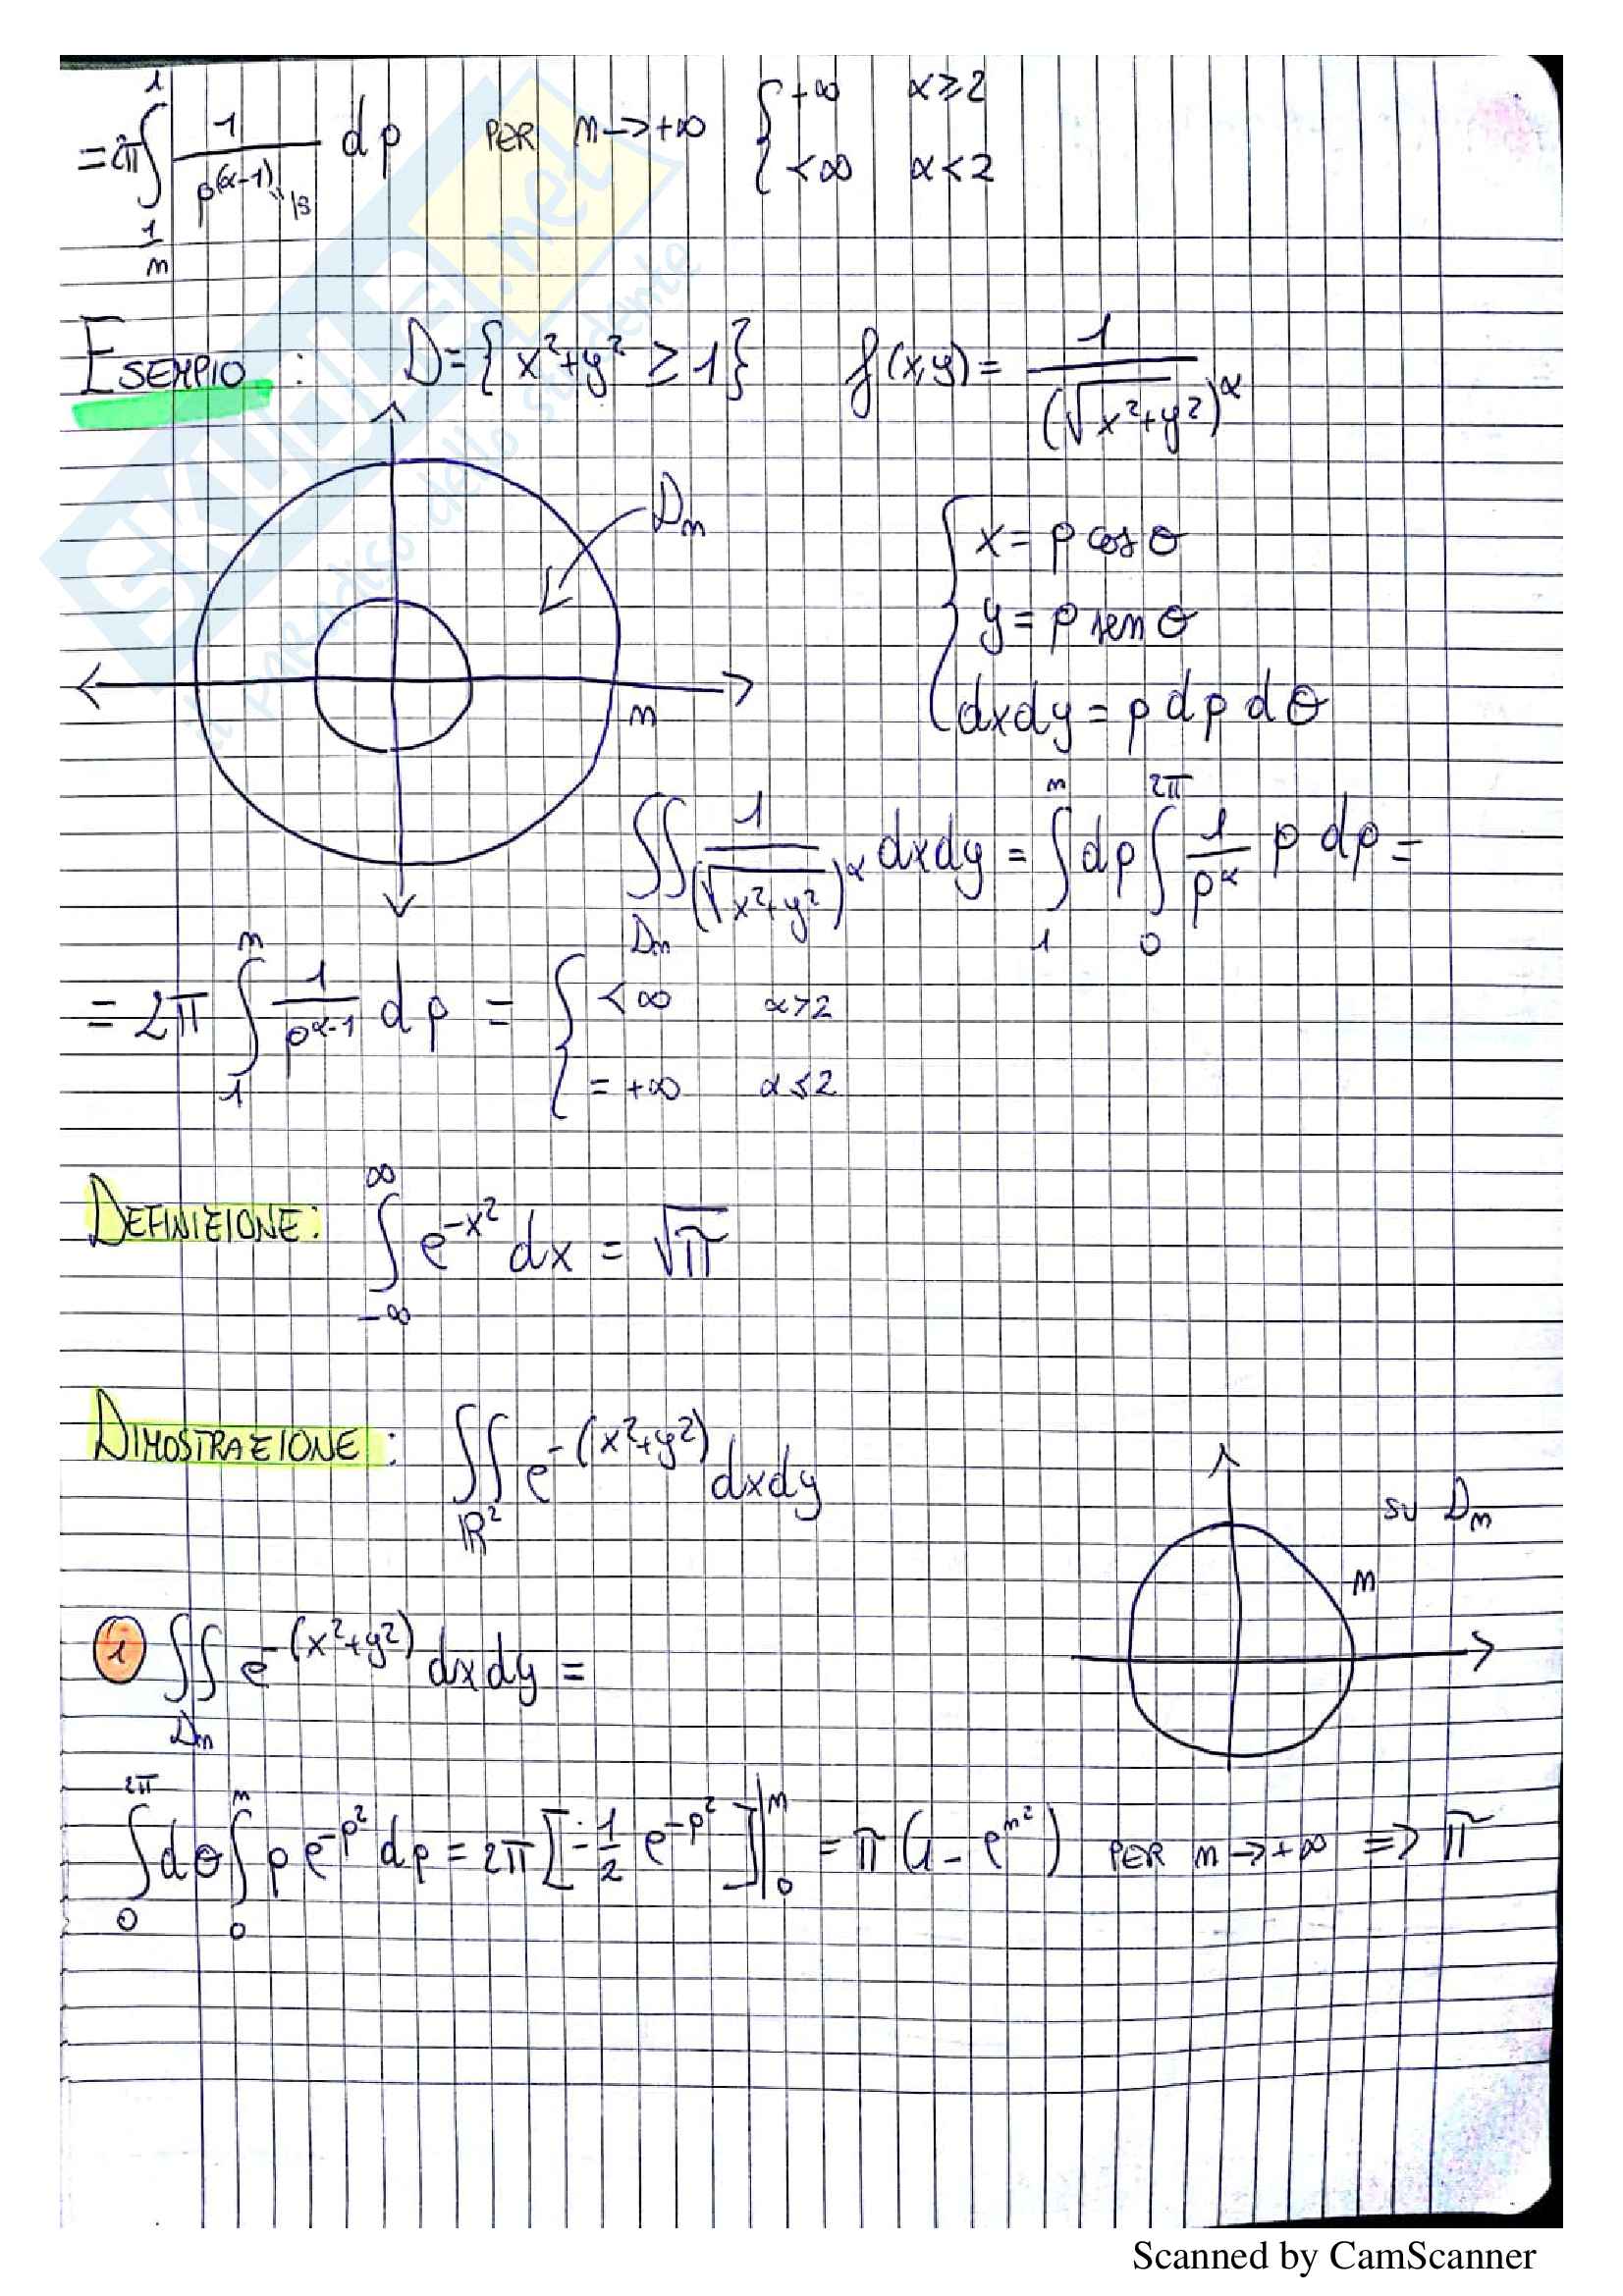 = 2π ∫_{1/n}^{1} 1/ρ^{(α-1)} dρ PER n → +∞ { +∞ α ≥ 2
{ < ∞ α < 2
ESEMPIO : D = { x² + y² ≥ 1 } f(x,y) = 1/(√x²+y²)^α
D_n
{ x = ρ cos θ
y = ρ sen θ
dxdy = ρ dρ dθ
n
∬_{D_n} 1/(√x²+y²)^α dxdy = ∫_1^n dρ ∫_0^{2π} 1/ρ^α ρ dρ =
= 2π ∫_1^n 1/ρ^{α-1} dρ = { < ∞ α > 2
{ = +∞ α ≤ 2
DEFINIZIONE: ∫_{-∞}^{∞} e^{-x²} dx = √π
DIMOSTRAZIONE : ∬_{ℝ²} e^{-(x²+y²)} dxdy
su D_n
n
1 ∬_{D_n} e^{-(x²+y²)} dxdy =
∫_0^{2π} dθ ∫_0^n ρ e^{-ρ²} dρ = 2π [ -1/2 e^{-ρ²} ] |_0^n = π (1 - e^{n²}) PER n → +∞ ⇒ π
SKUOLA.net
il paradiso dello studente
Scanned by CamScanner